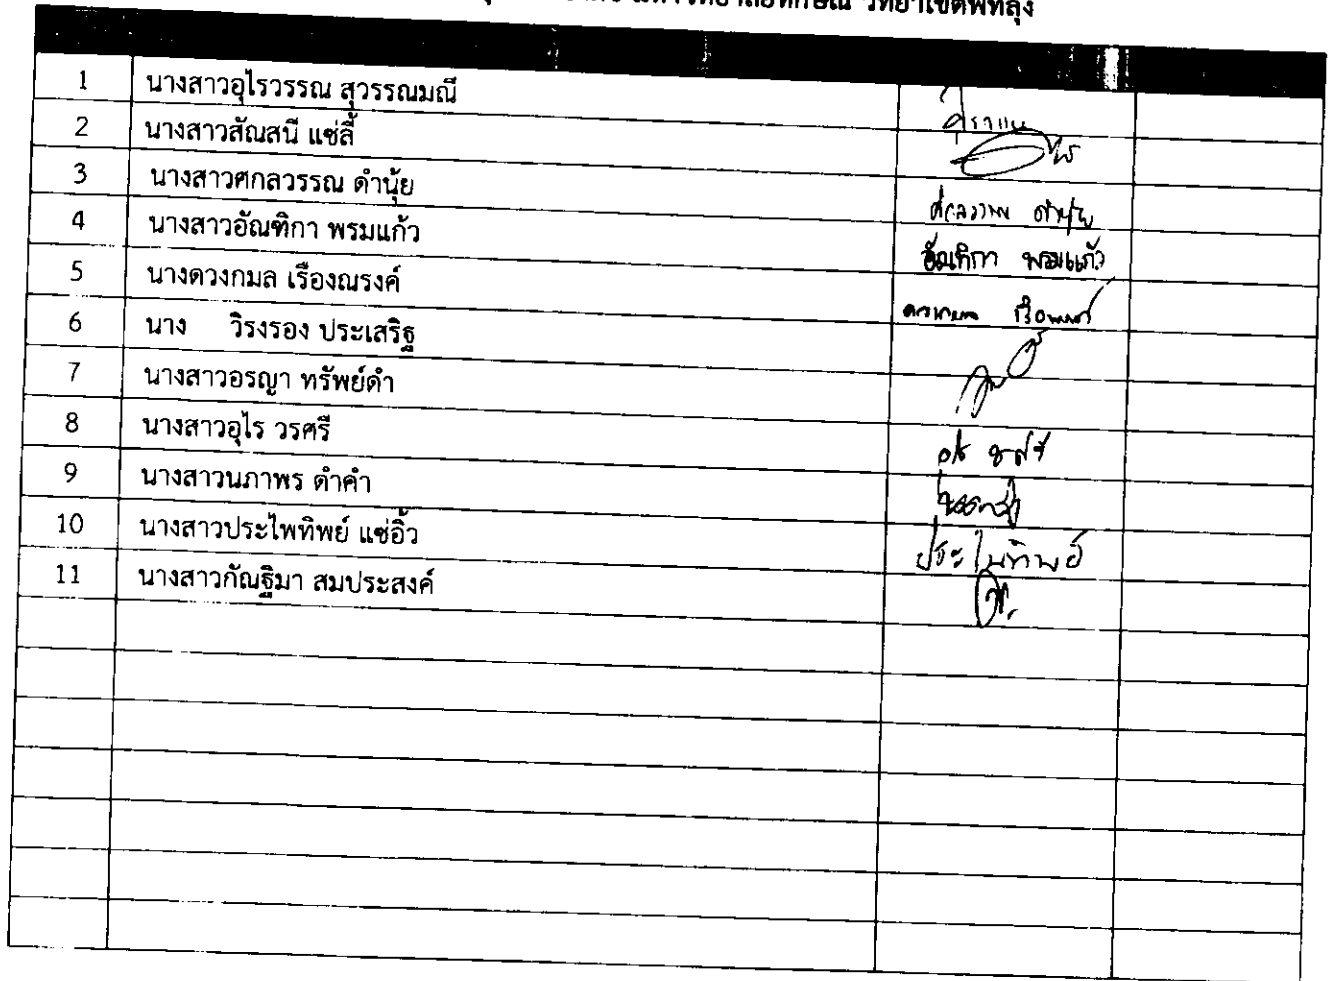 มหาวิทยาลัยทักษิณ วิทยาเขตพัทลุง
1 นางสาวอุไรวรรณ สุวรรณมณี
2 นางสาวสัณสนี แซ่ลี้
3 นางสาวศกลวรรณ ดำนุ้ย ศกลวรรณ ดำนุ้ย
4 นางสาวอัณฑิกา พรมแก้ว อัณฑิกา พรมแก้ว
5 นางดวงกมล เรืองณรงค์ ดวงกมล เรืองณรงค์
6 นาง วิรงรอง ประเสริฐ
7 นางสาวอรญา ทรัพย์ดำ
8 นางสาวอุไร วรศรี
9 นางสาวนภาพร ดำคำ
10 นางสาวประไพทิพย์ แซ่อิ้ว ประไพทิพย์
11 นางสาวกัณฐิมา สมประสงค์